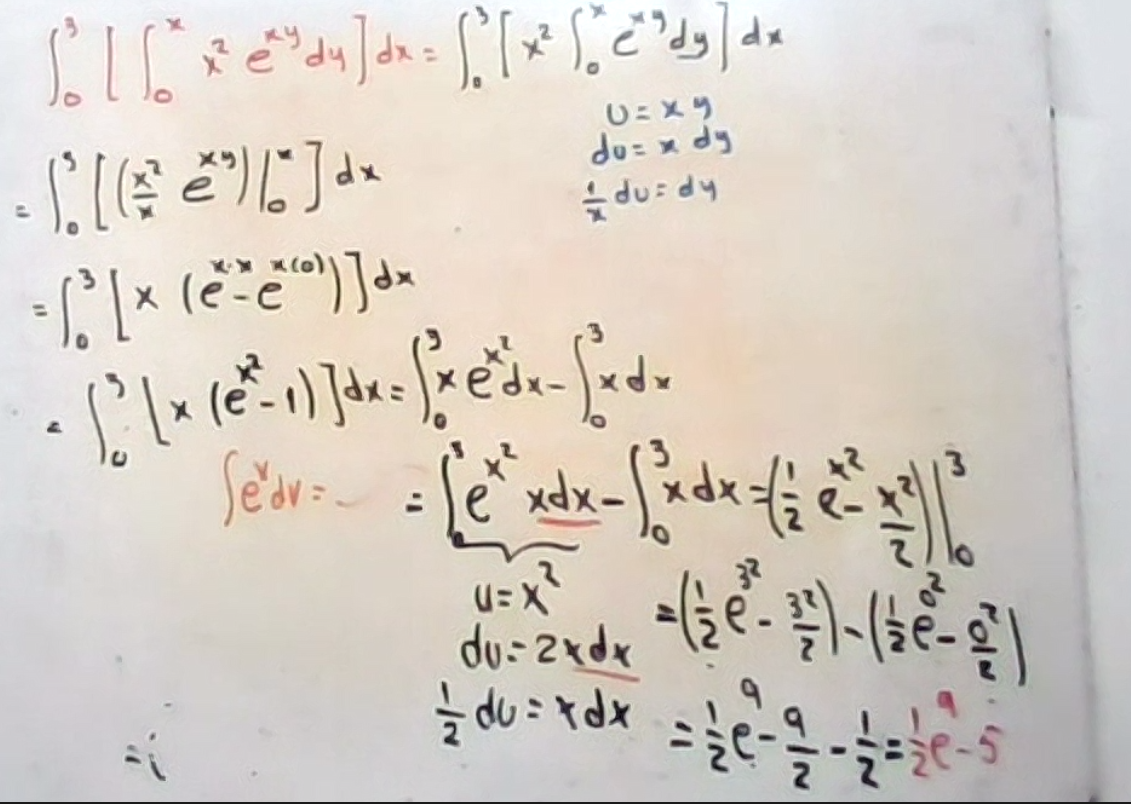 ∫₀³ [∫₀ˣ x² eˣʸ dy] dx = ∫₀³ [x² ∫₀ˣ eˣʸ dy] dx
u = x y
du = x dy
1/x du = dy
= ∫₀³ [(x²/x eˣʸ)|₀ˣ] dx
= ∫₀³ [x (e^(x·x) - e^(x(0)))] dx
= ∫₀³ [x (e^(x²) - 1)] dx = ∫₀³ x e^(x²) dx - ∫₀³ x dx
∫eᵛ dv =
= ∫₀³ e^(x²) x dx - ∫₀³ x dx = (1/2 e^(x²) - x²/2)|₀³
u = x²
du = 2x dx
1/2 du = x dx
= (1/2 e^(3²) - 3²/2) - (1/2 e^(0²) - 0²/2)
= 1/2 e⁹ - 9/2 - 1/2 = 1/2 e⁹ - 5
= i